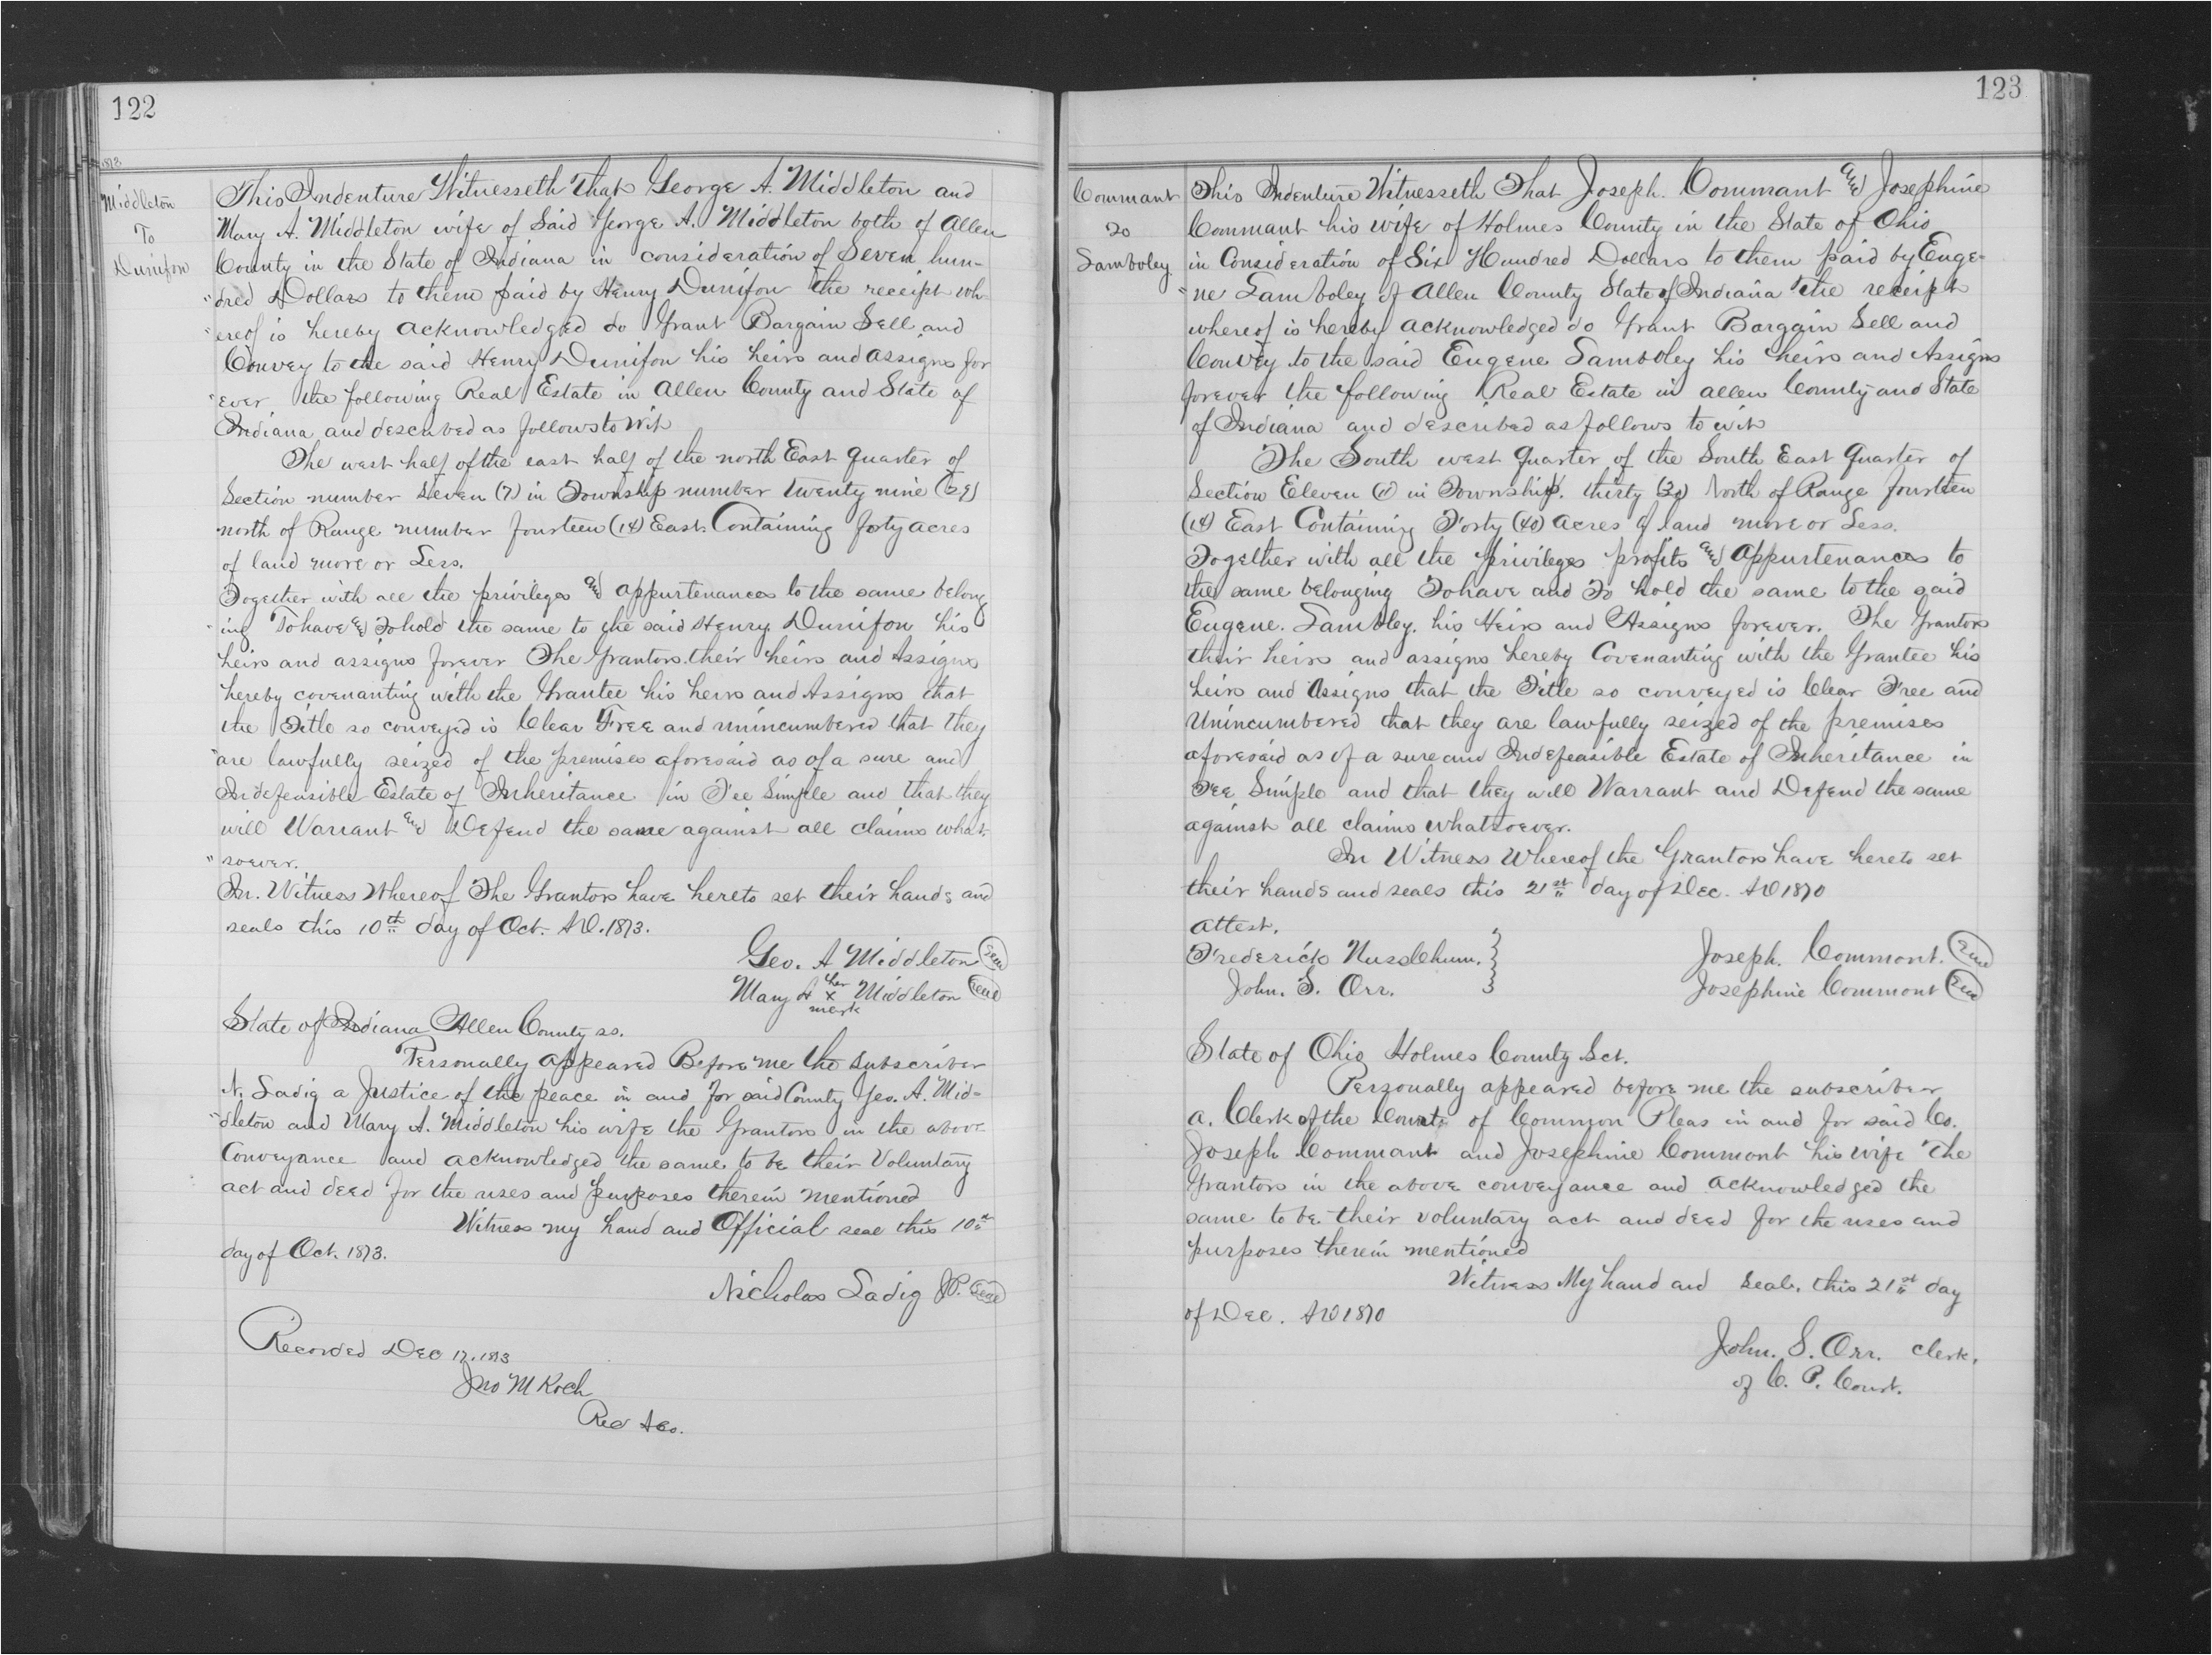 122
1873
Middleton
To
Dunifon
This Indenture Witnesseth That George A. Middleton and
Mary A. Middleton wife of Said George A. Middleton both of Allen
County in the State of Indiana in consideration of Seven hun-
"dred Dollars to them paid by Henry Dunifon the receipt wh-
"ereof is hereby acknowledged do Grant Bargain Sell and
Convey to the said Henry Dunifon his heirs and assigns for
"ever the following Real Estate in Allen County and State of
Indiana and described as follows to wit
The west half of the east half of the north East quarter of
Section number Seven (7) in Township number twenty nine (29)
north of Range number fourteen (14) East. Containing forty acres
of land more or Less.
Together with all the privileges and appurtenances to the same belong
"ing To have and To hold the same to the said Henry Dunifon his
heirs and assigns forever The Grantors their heirs and Assigns
hereby covenanting with the Grantee his heirs and Assigns that
the Title so conveyed is Clear Free and unincumbered that they
"are lawfully seized of the premises aforesaid as of a sure and
Indefeasible Estate of Inheritance in Fee Simple and that they
will Warrant and Defend the same against all claims what
"soever.
In. Witness Whereof The Grantors have hereto set their hands and
seals this 10th day of Oct. AD. 1873.
Geo. A Middleton Seal
Mary A her x mark Middleton Seal
State of Indiana Allen County ss.
Personally appeared Before me the subscriber
N. Ladig a Justice of the peace in and for said County Geo. A. Mid-
"dleton and Mary A. Middleton his wife the Grantors in the above
Conveyance and acknowledged the same to be their Voluntary
act and deed for the uses and purposes therein mentioned
Witness my hand and Official seal this 10th
day of Oct. 1873.
Nicholas Ladig JP. Seal
Recorded Dec 17. 1873
Jno M Koch
Rec A Co.
123
Commant
To
Samboley
This Indenture Witnesseth That Joseph. Commant and Josephine
Commant his wife of Holmes County in the State of Ohio
in Consideration of Six Hundred Dollars to them paid by Euge-
"ne Samboley of Allen County State of Indiana the receipt
whereof is hereby acknowledged do Grant Bargain Sell and
Convey to the said Eugene Samboley his heirs and Assigns
forever the following Real Estate in allen County and State
of Indiana and described as follows to wit
The South west quarter of the South East Quarter of
Section Eleven (11) in Township. thirty (30) North of Range fourteen
(14) East Containing Forty (40) acres of land more or Less.
Together with all the privileges profits and appurtenances to
the same belonging To have and To hold the same to the said
Eugene. Samboley. his Heirs and Assigns forever. The Grantors
their heirs and assigns hereby Covenanting with the Grantee his
heirs and Assigns that the Title so conveyed is Clear Free and
Unincumbered that they are lawfully seized of the premises
aforesaid as of a sure and Indefeasible Estate of Inheritance in
Fee Simple and that they will Warrant and Defend the same
against all claims whatsoever.
In Witness Whereof the Grantors have hereto set
their hands and seals this 21st day of Dec. AD 1870
attest.
Frederick Nusslhum.
John. S. Orr.
Joseph. Commont. Seal
Josephine Commont Seal
State of Ohio Holmes County Sct.
Personally appeared before me the subscriber
a. Clerk of the Court of Common Pleas in and for said Co.
Joseph Commant and Josephine Commont his wife The
Grantors in the above conveyance and acknowledged the
same to be their voluntary act and deed for the uses and
purposes therein mentioned
Witness My hand and Seal. this 21st day
of Dec. AD 1870
John. S. Orr. Clerk.
of C. P. Court.